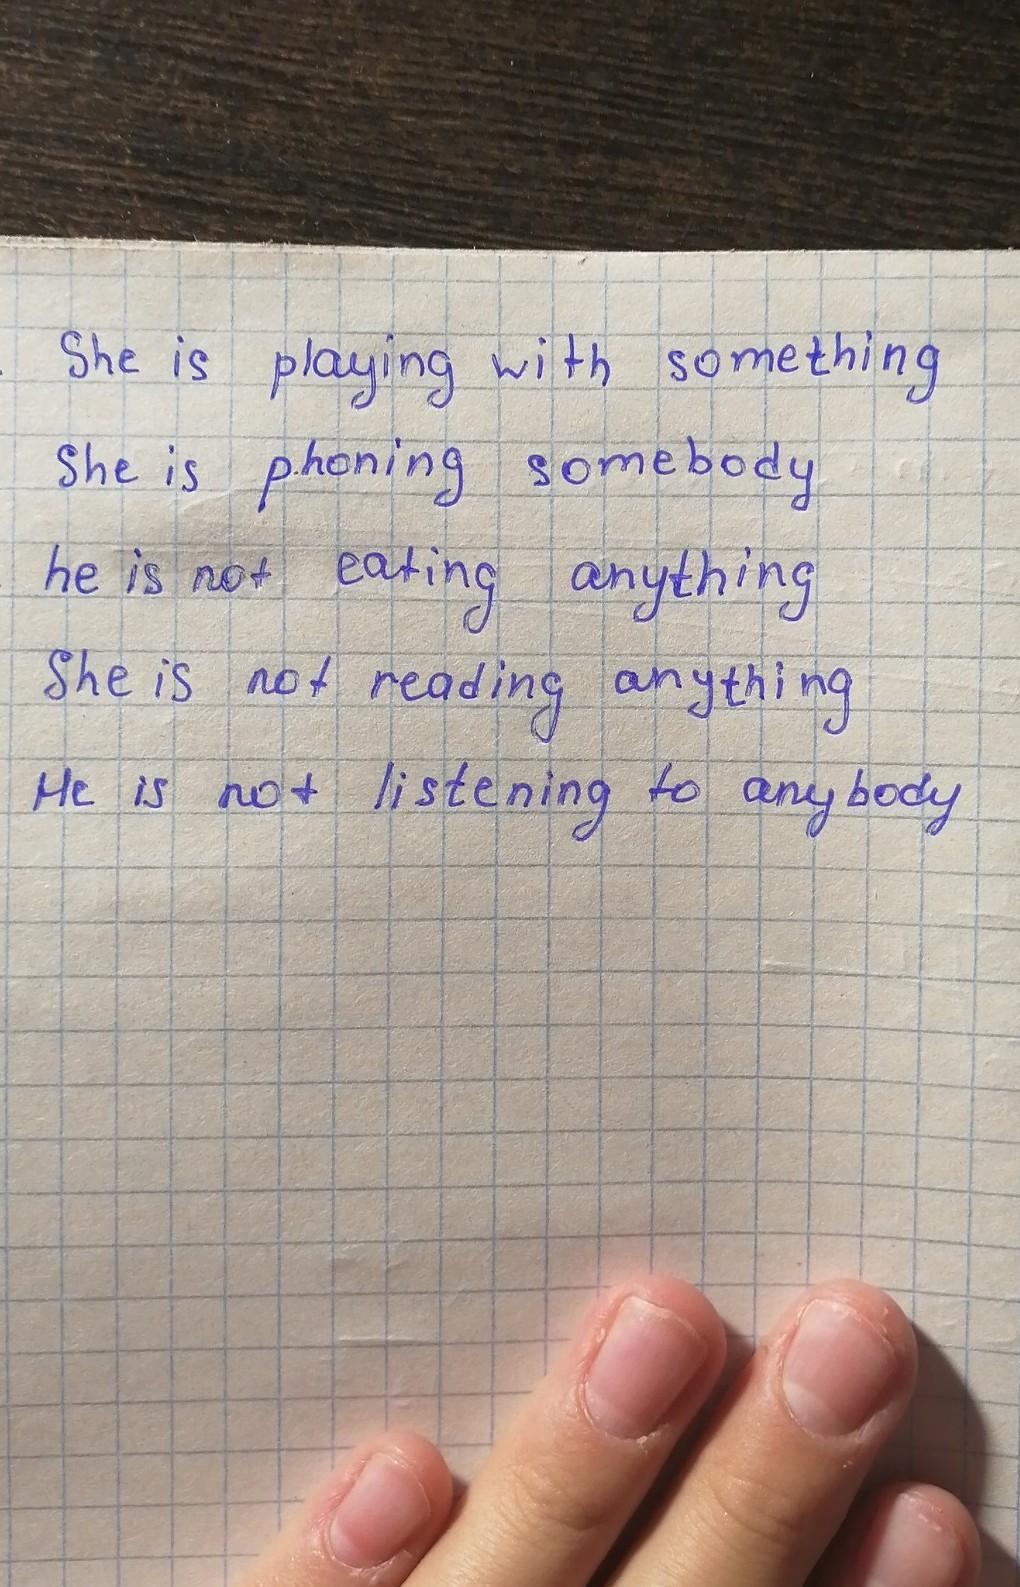 She is playing with something
She is phoning somebody
he is not eating anything
She is not reading anything
He is not listening to anybody